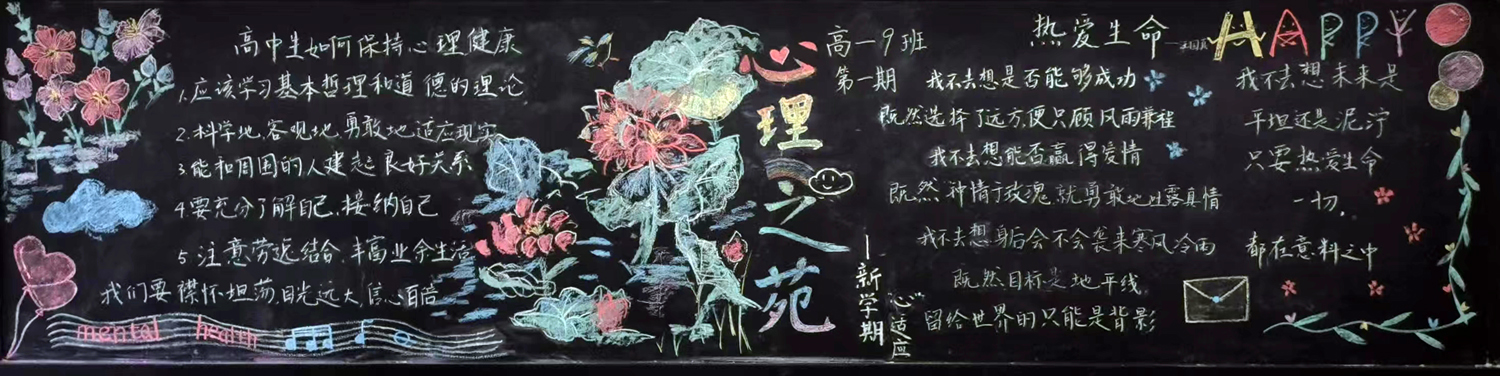 高中生如何保持心理健康
1.应该学习基本哲理和道德的理论
2.科学地,客观地,勇敢地适应现实
3.能和周围的人建起良好关系
4.要充分了解自己,接纳自己
5.注意劳逸结合,丰富业余生活
我们要襟怀坦荡,目光远大,信心百倍
mental health
心理之苑
高一9班
第一期
——新学期“心”适应
热爱生命
——汪国真
HAPPY
我不去想是否能够成功
既然选择了远方,便只顾风雨兼程
我不去想能否赢得爱情
既然钟情于玫瑰,就勇敢地吐露真情
我不去想身后会不会袭来寒风冷雨
既然目标是地平线
留给世界的只能是背影
我不去想未来是
平坦还是泥泞
只要热爱生命
一切,
都在意料之中